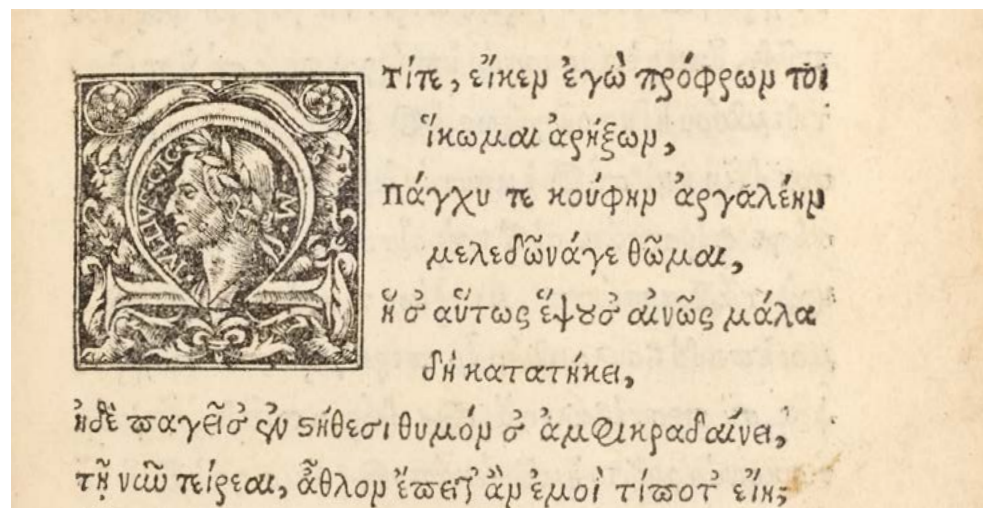 Ὦ τίτε, εἴκεν ἐγὼ πρόφρων τοι
ἵκωμαι ἀρήξων,
πάγχυ τε κούφην ἀργαλέην
μελεδῶνάγε θῶμαι,
ἥ σ' αὔτως ἕψουσ' αἰνῶς μάλα
δὴ κατατήκει,
ἠδὲ παγεῖσ' ἐν στήθεσι θυμόν σ' ἀμφικραδαίνει,
τῇ νῦν τείρεαι, ἆθλον ἔπειτ' ἂν ἐμοὶ τίποτ' εἴη;